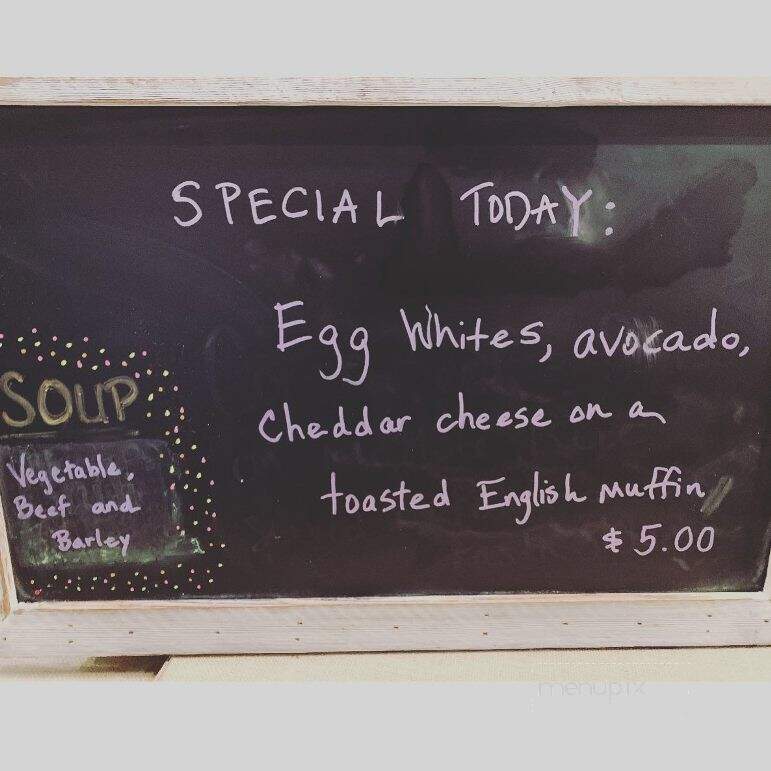 SPECIAL TODAY:
Egg Whites, avocado,
Cheddar cheese on a
toasted English muffin
$5.00
SOUP
Vegetable,
Beef and
Barley
menupix